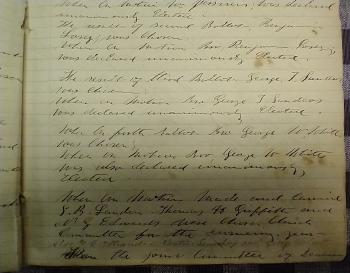 When on Motion Mr Parsons was declared
unanimously Elected.
The result of second Ballot Benjamin
Losey was Chosen
When on Motion Bro Benjamin Losey
was declared unanimously Elected.
The result of third Ballot George T Sanders
was Chosen
When on Motion Bro George T Sanders
was declared unanimously Elected.
When on fourth Ballot Bro George W White
was Chosen
When on Motion Bro George W White
was also declared unanimously
Elected
When on Motion made and carried
S. B. Landon Thomas H Griffith and
N Y Edwards were chosen
Committee for the ensuing year
When the joint Committee of